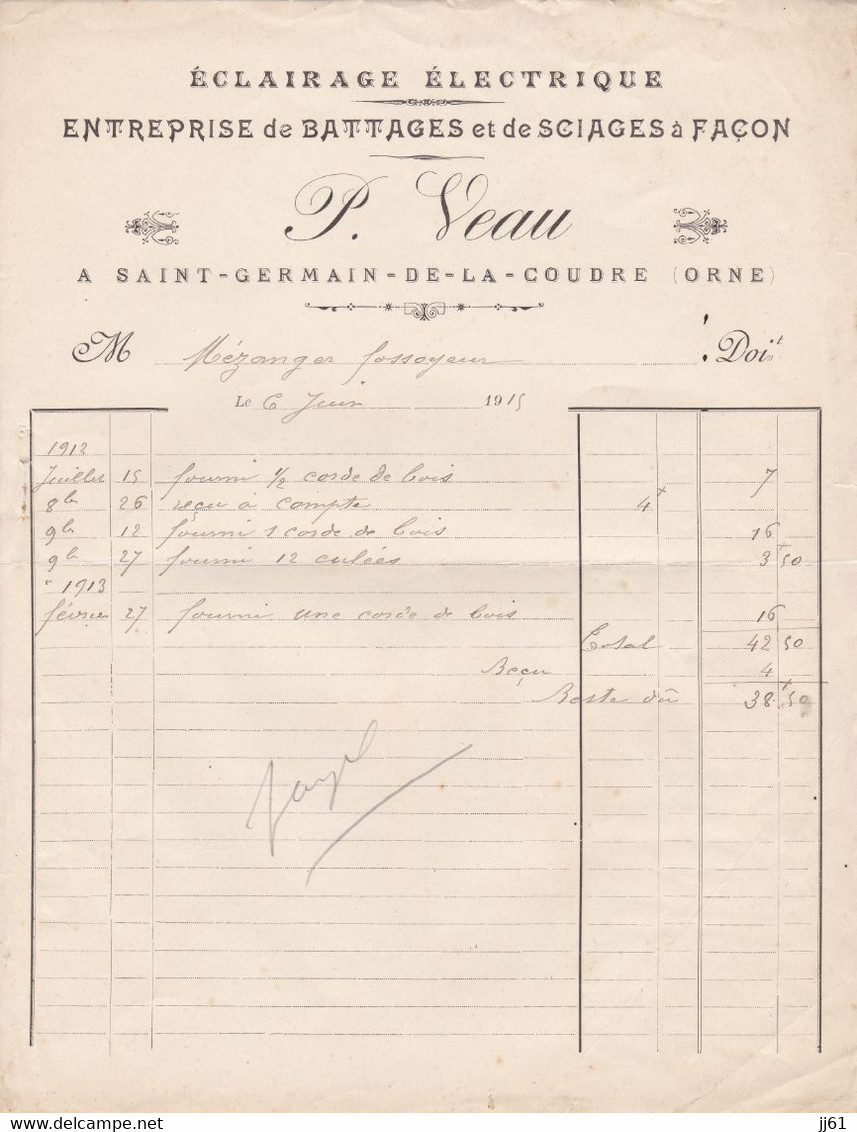 ÉCLAIRAGE ÉLECTRIQUE
ENTREPRISE de BATTAGES et de SCIAGES à FAÇON
P. Veau
A SAINT-GERMAIN-DE-LA-COUDRE (ORNE)
M Mézanger fossoyeur Doit
Le 6 Juin 1915
1912
Juillet 15 fourni 1/2 corde de bois 7
8bre 26 reçu à compte 4
9bre 12 fourni 1 corde de bois 16
9bre 27 fourni 12 culées 3 50
" 1913
février 27 fourni une corde de bois 16
Total 42 50
Reçu 4
Reste dû 38 50
payé
delcampe.net
jj61